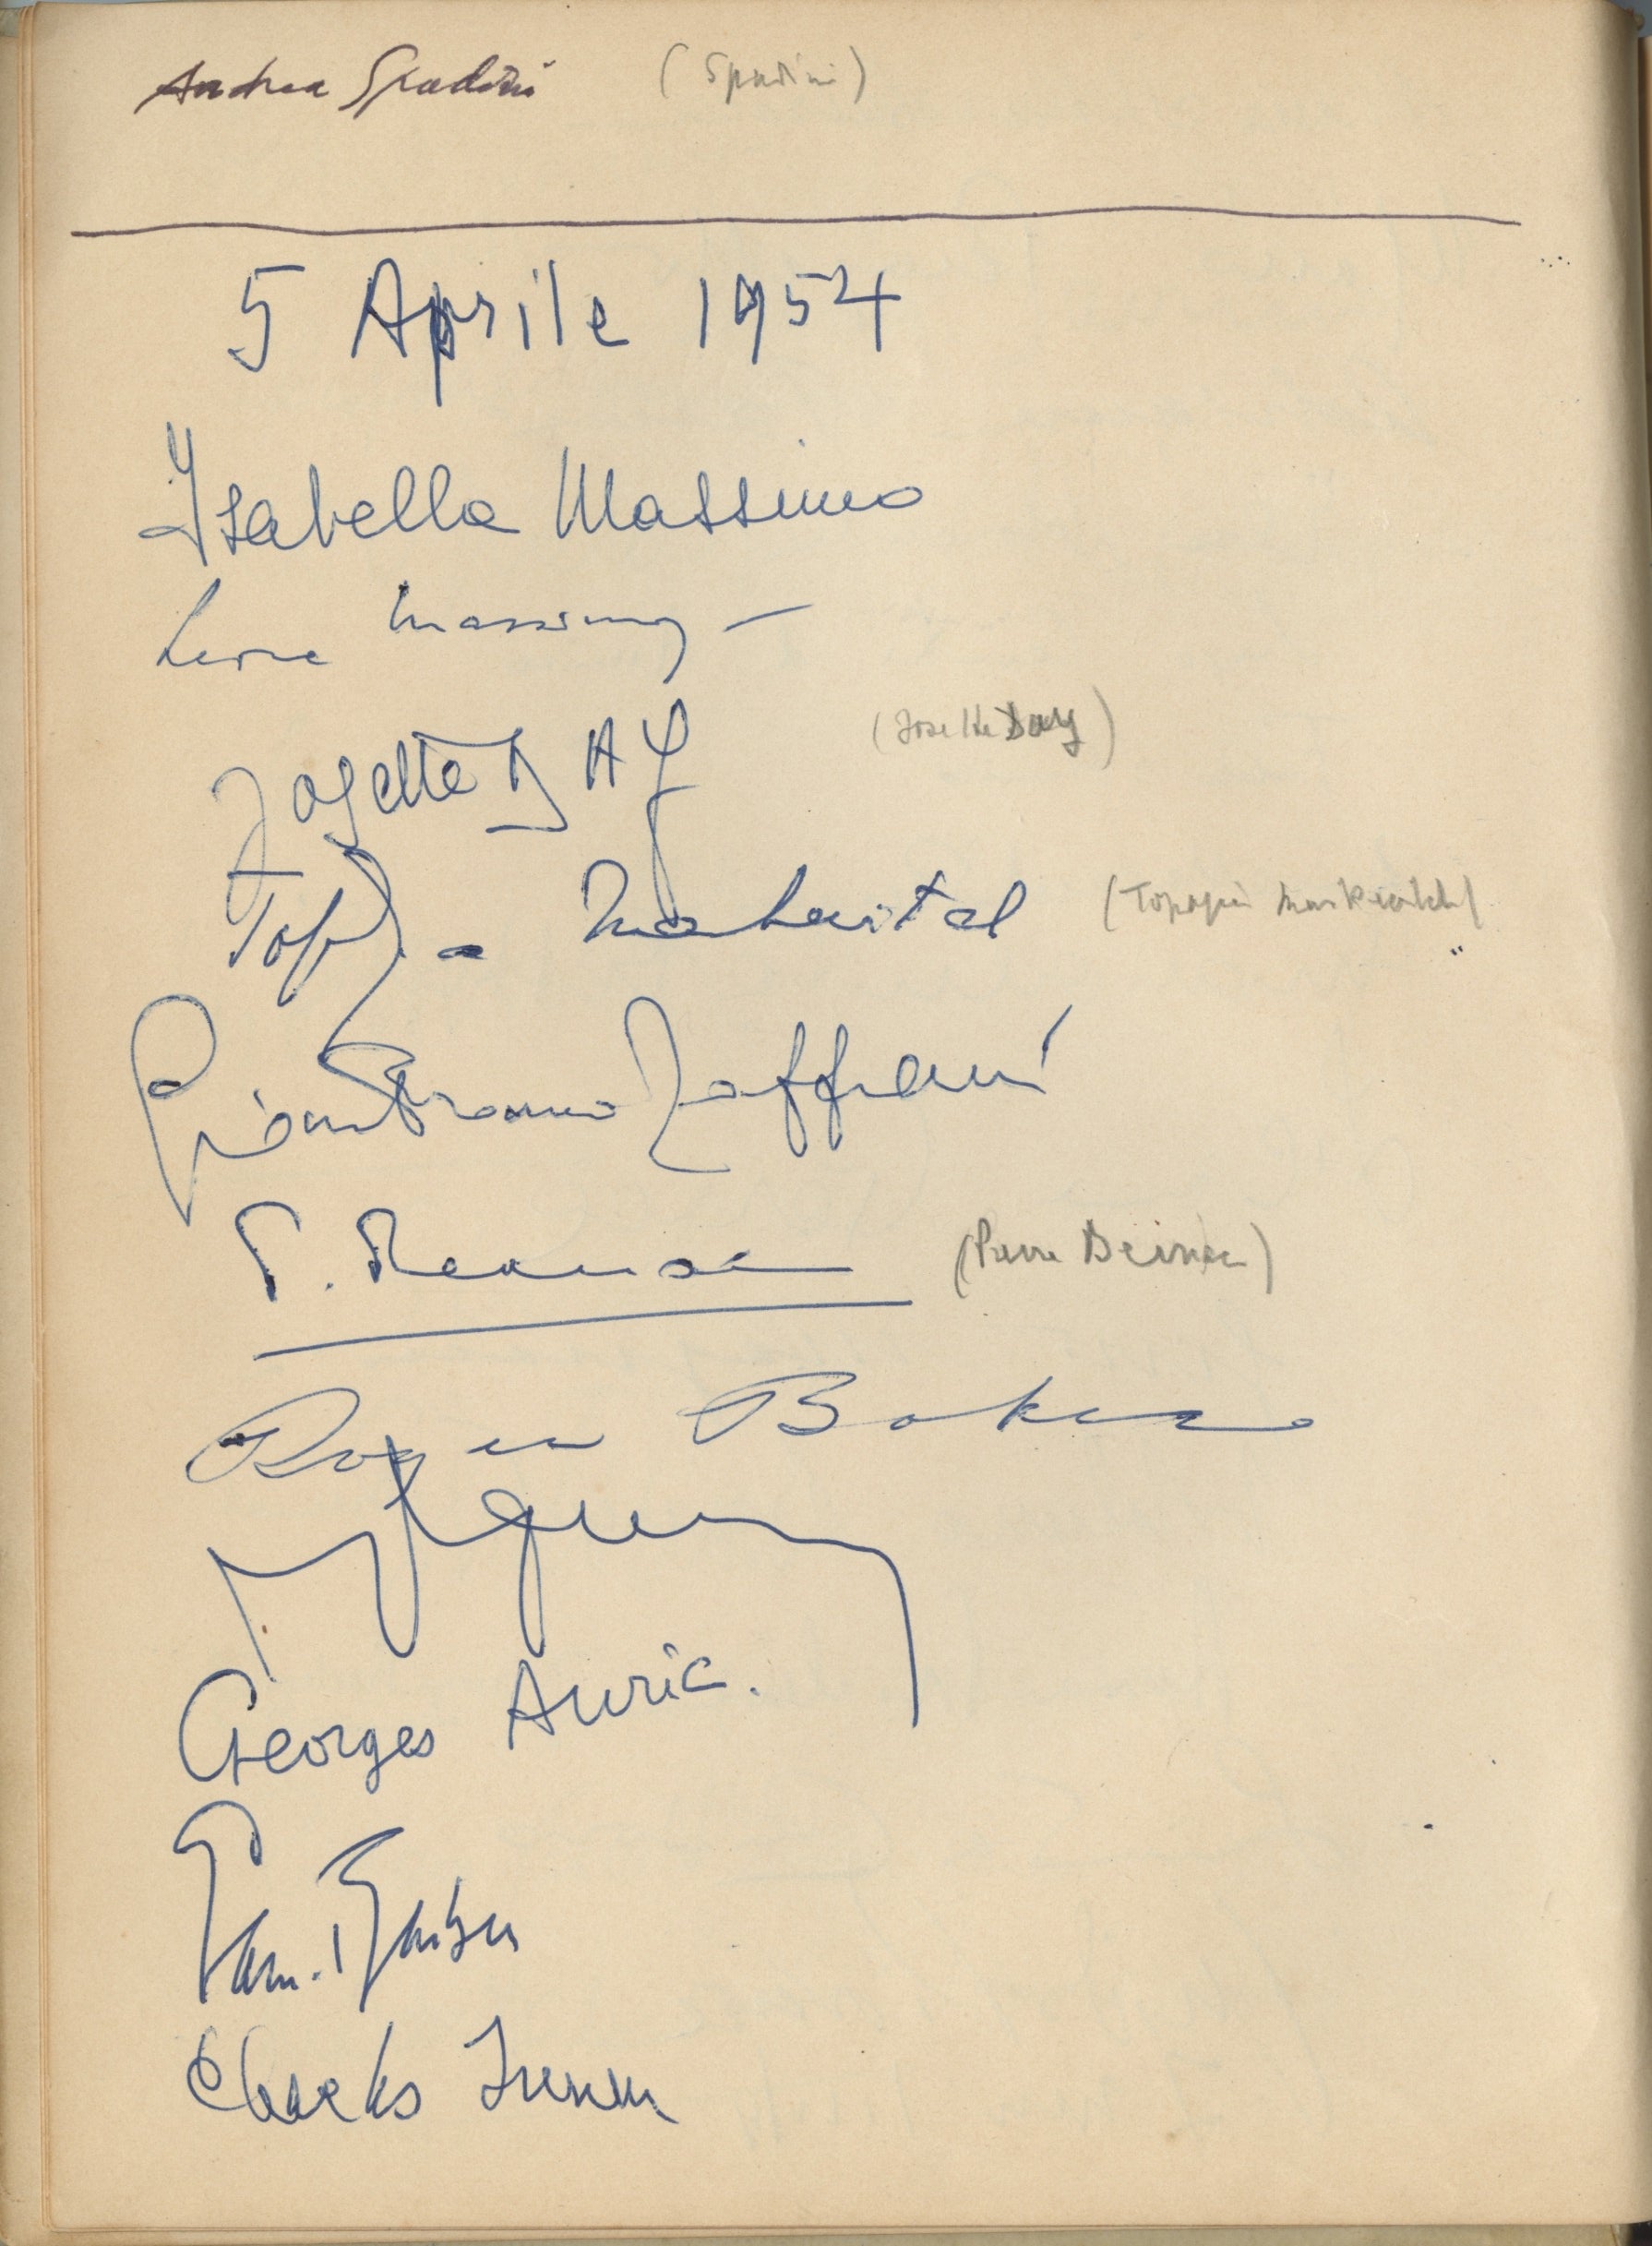 Andrea Spadini (Spadini)
5 Aprile 1954
Ysabella Massimo
Leone Massimo
Josette DAY (Josette Day)
Topazia Markevitch (Topazia Markevitch)
Gianfranco Zaffrani
P. (Pierre
Roger Baker
Georges Auric.
Charles Trenet